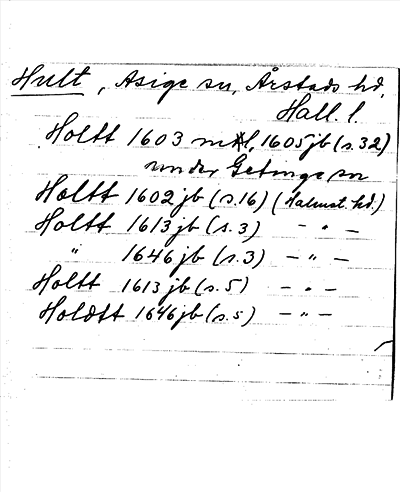 Hult, Asige sn, Årstads hd,
Hall. l.
Holtt 1603 mtl, 1605 jb (s. 32)
under Getinge sn
Holtt 1602 jb (s. 16) (Halmst. hd.)
Holtt 1613 jb (s. 3) - " -
" 1646 jb (s. 3) - " -
Holtt 1613 jb (s. 5) - " -
Holdtt 1646 jb (s. 5) - " -